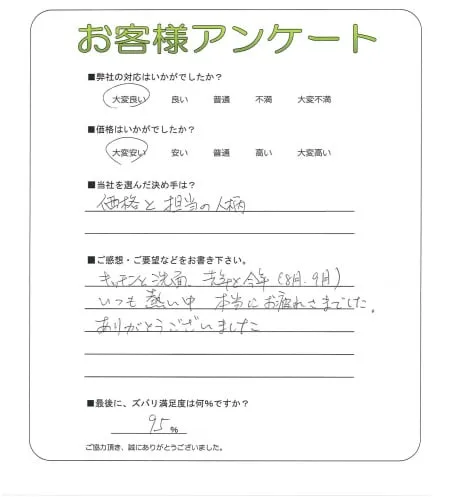 お客様アンケート
■弊社の対応はいかがでしたか？
大変良い 良い 普通 不満 大変不満
■価格はいかがでしたか？
大変安い 安い 普通 高い 大変高い
■当社を選んだ決め手は？
価格と担当の人柄
■ご感想・ご要望などをお書き下さい。
キッチンと洗面、先年と今年(8月、9月)
いつも熱い中 本当にお疲れさまでした。
ありがとうございました
■最後に、ズバリ満足度は何%ですか？
95%
ご協力頂き、誠にありがとうございました。